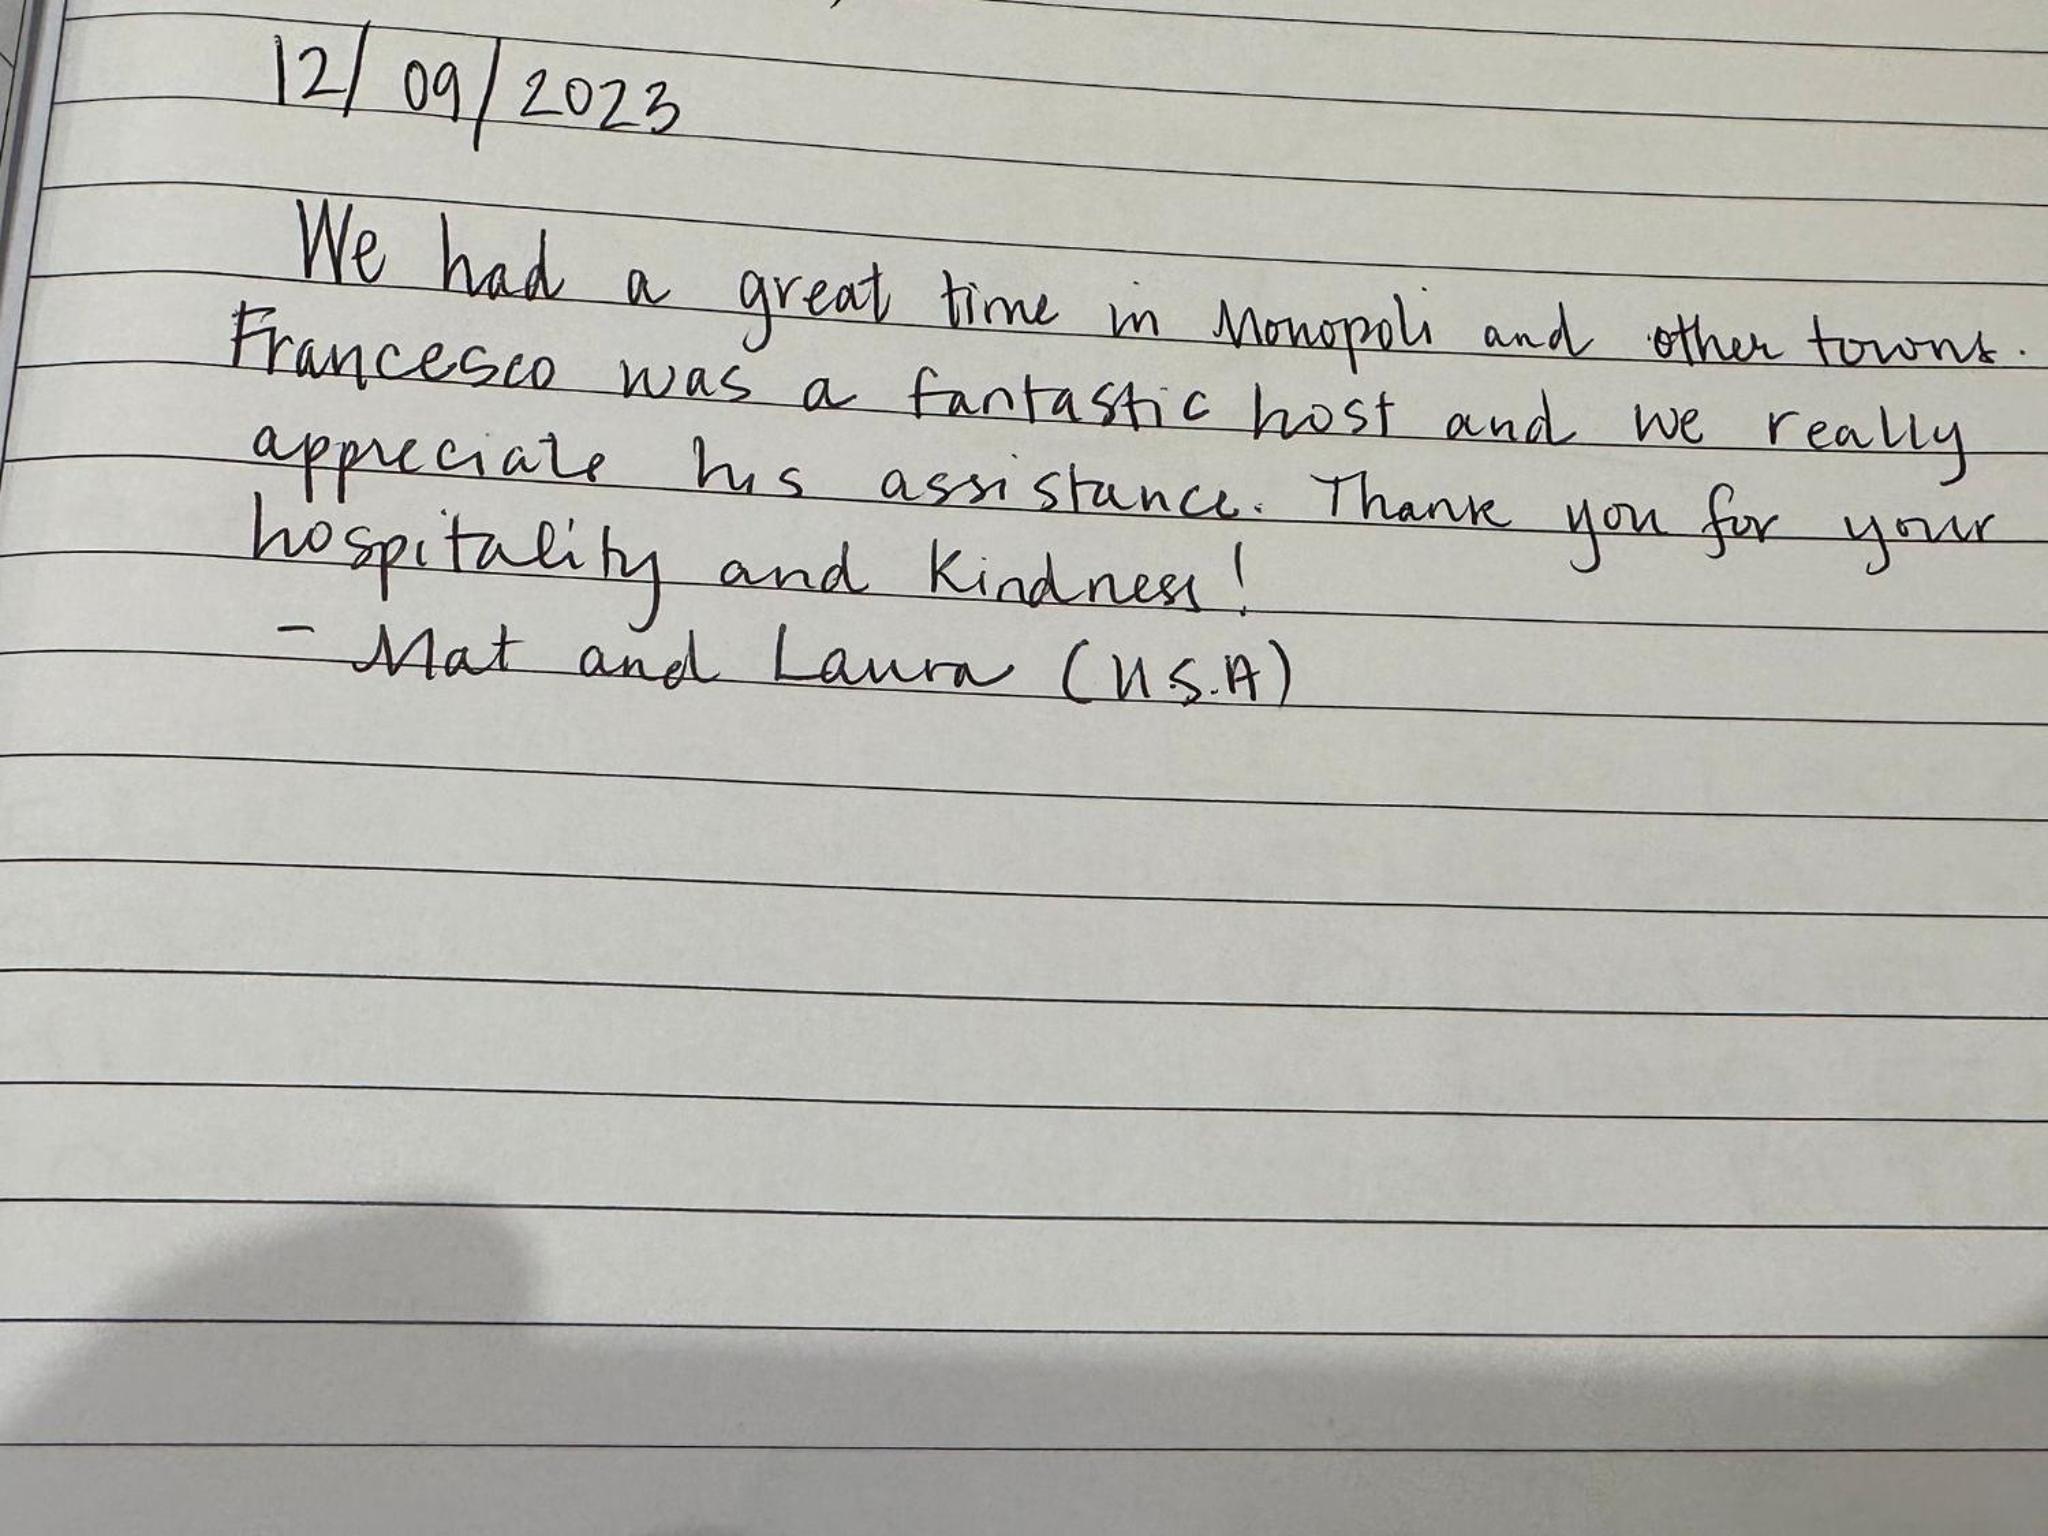 12/09/2023
We had a great time in Monopoli and other towns.
Francesco was a fantastic host and we really
appreciate his assistance. Thank you for your
hospitality and kindness!
- Mat and Laura (U.S.A)